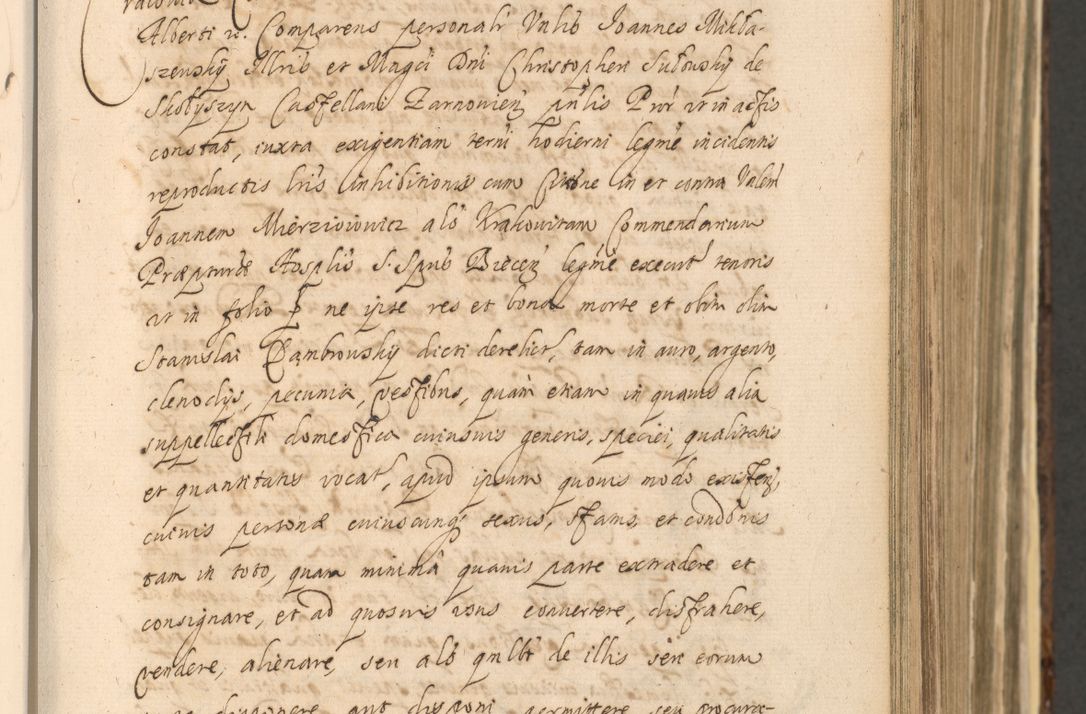 Alberti etc. Comparens personalr Vnlis Joannes Mikła-
szewskÿ Illris et Magci Dni Christopheri SułowskÿÌ de
Skołyszyn Castellani Zarnovien pnlis Prör ut in actis
constat, iuxta exigentiam terni hodierni legme incidentis
reproductis lris inhibitionis cum Citone in et contra Vnlem
Joannem Mierziowicz als Krakowitam Commendarium
Præpturæ Hosplis S. Spus Biecen legme execut tenoris
ut in folio ne ipse res et bona morte et obitu olim
Stanislai Dambrowskÿ dicti derelict, tam in auro, argento,
clenodÿs, pecunia, vestibus, quam etiam in quavis alia
suppellectili domestica cuiusvis generis, speciei, qualitatis
et quantitatis vocat, apud ipsum quovis modo existen,
cuivis personæ cuiuscunq sexus, status et condonis
tam in toto, quam minima quavis parte extradere et
consignare, et ad quosvis usus convertere, distrahere,
vendere, alienare, seu als qmlbt de illis seu eorum
disponere aut disponi permittere seu procura-